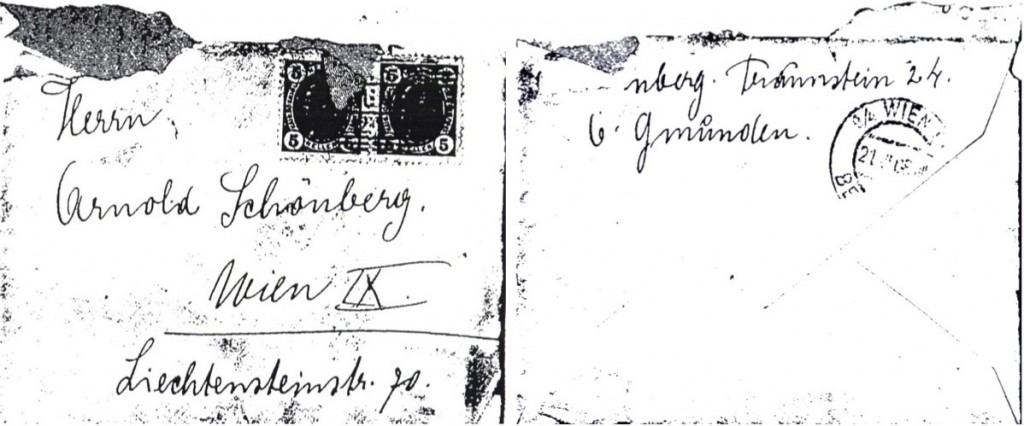 Herrn
5 5
5 HELLER HELLER 5
Arnold Schönberg.
Wien IX.
Liechtensteinstr. 70.
nberg. Traunstein 24.
b. Gmünden.
WIEN
21